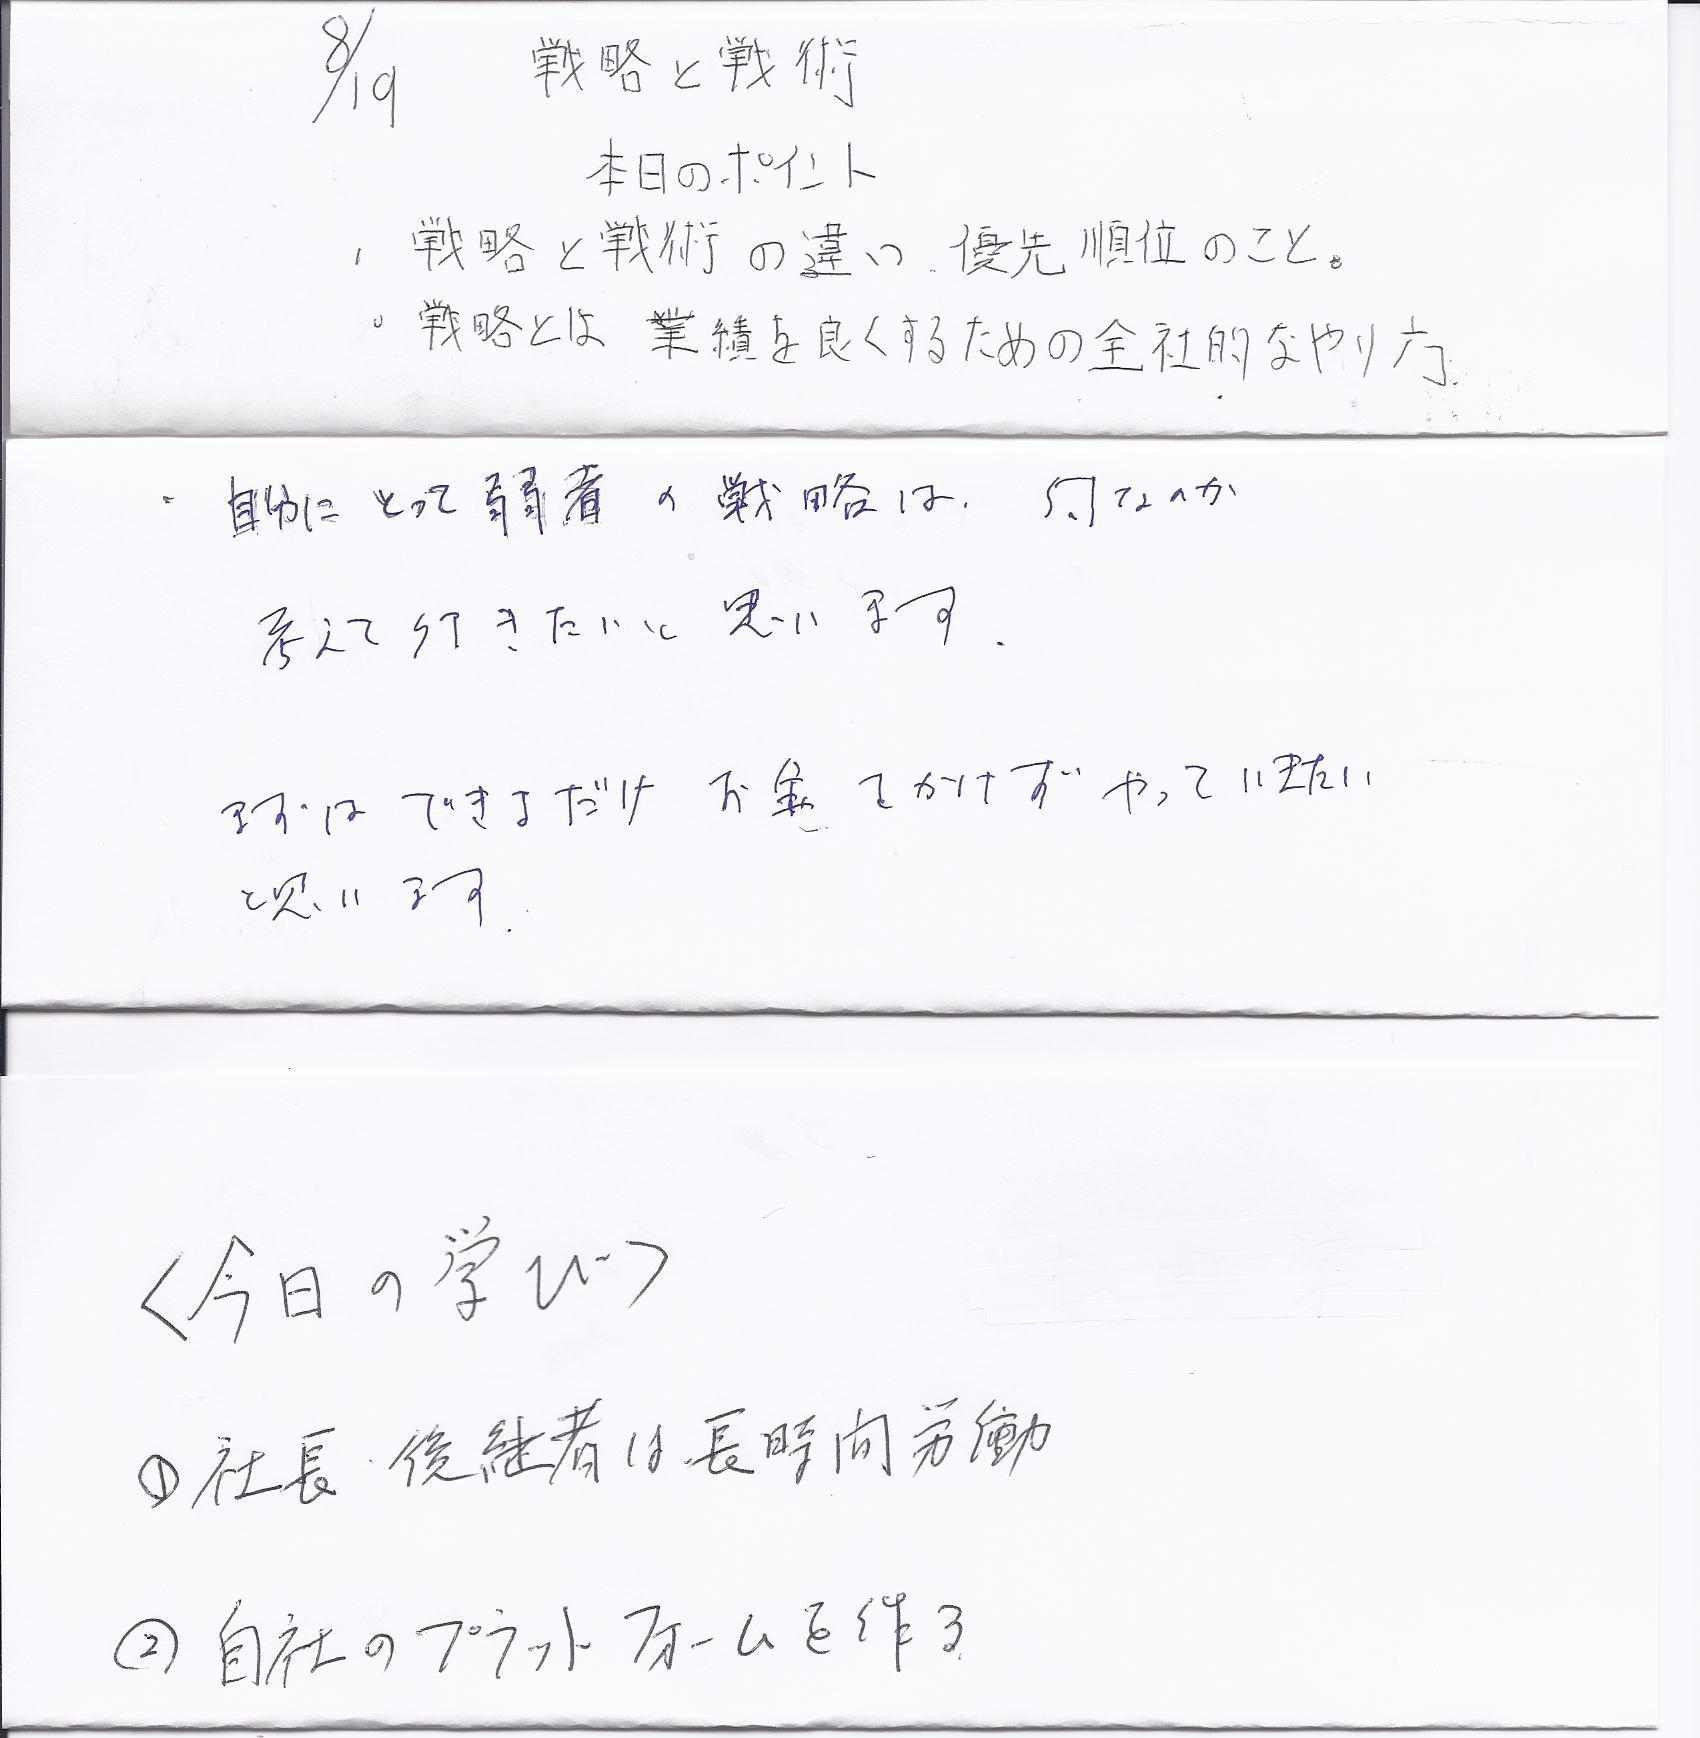 8/19 戦略と戦術
本日のポイント
、戦略と戦術の違い、優先順位のこと。
。戦略とは 業績を良くするための全社的なやり方.
・自分にとって弱者の戦略は、何なのか
考えて行きたいと思います.
まずはできるだけお金をかけずやっていきたい
と思います.
〈今日の学び〉
① 社長・後継者は長時間労働
② 自社のプラットフォームを作る